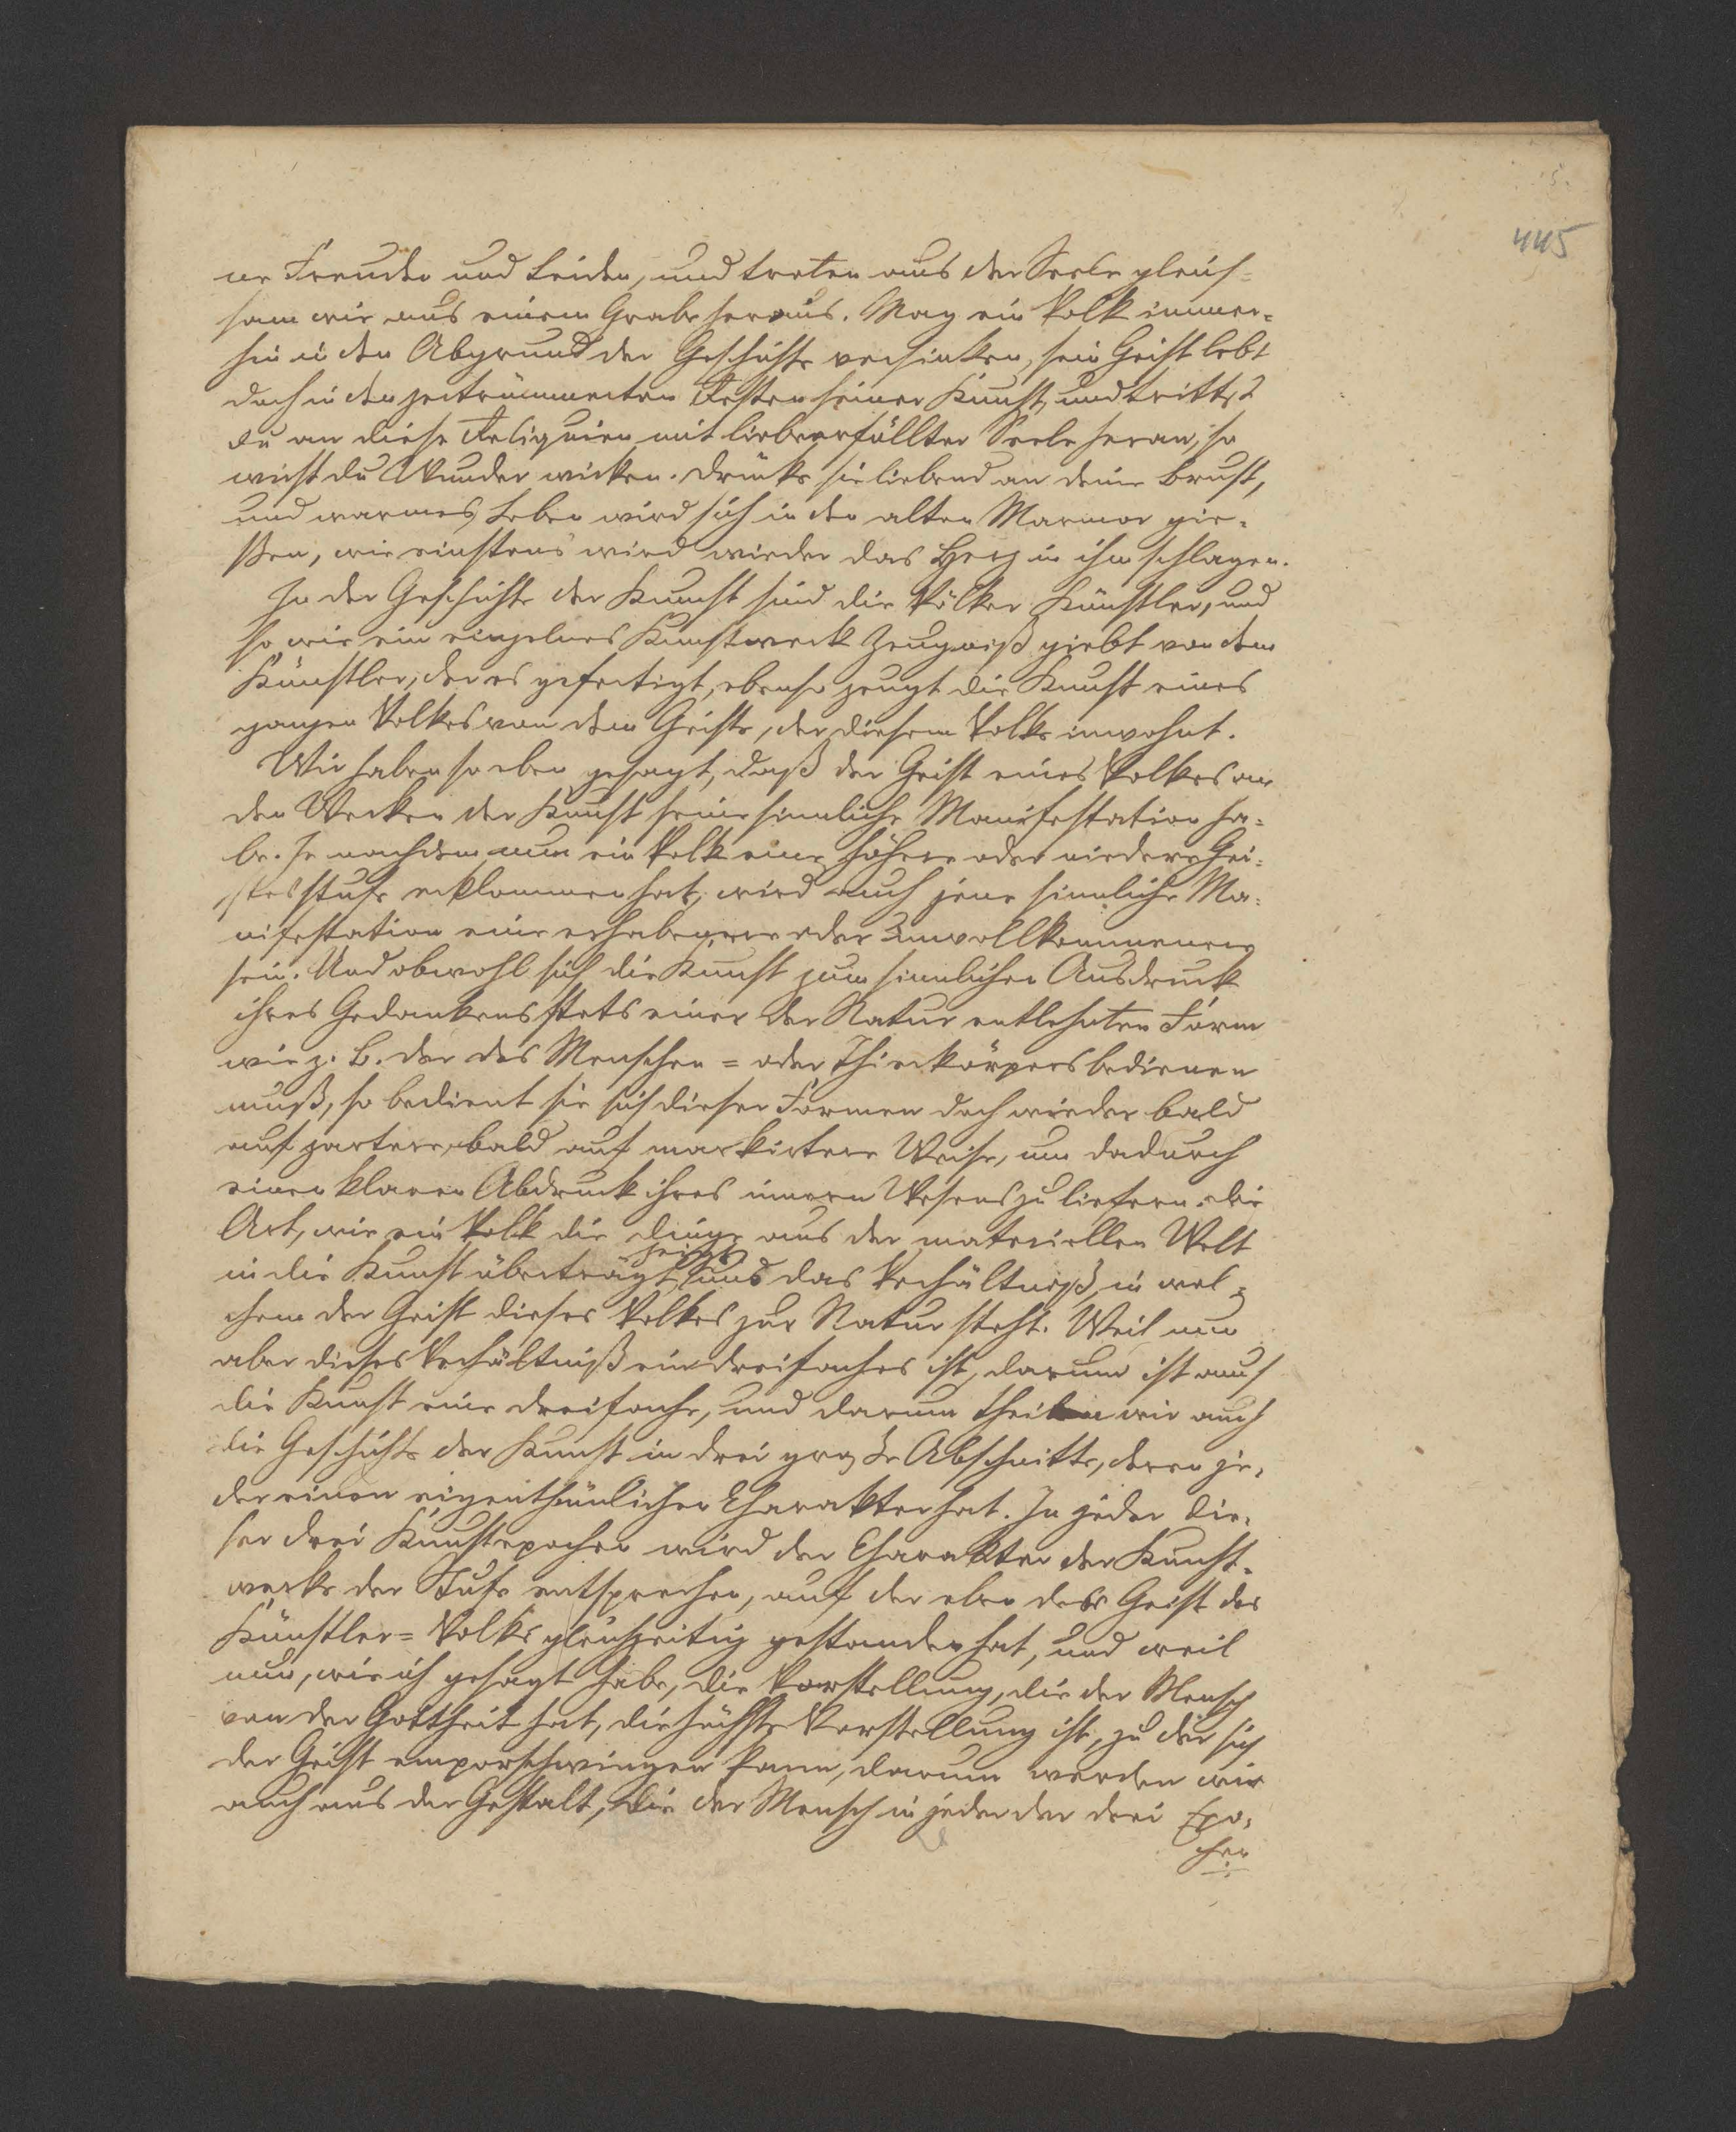 5.
445
ne Freuden und Leiden, und treten aus der Seele gleich=
sam wie aus einem Grabe heraus. Mag ein Volk immer=
hin in den Abgrund der Geschichte versinken, sein Geist lebt
doch in den zertrümmerten Resten seiner Kunst, und trittst
du an diese Reliquien mit liebeerfüllter Seele heran, so
wirst du Wunder wirken. Drücke sie liebend an deine Brust,
und warmes Leben wird sich in den alten Marmor gie=
ßen, wie einstens wird wieder das Herz in ihm schlagen.
In der Geschichte der Kunst sind die Völker Künstler, und
so wie ein einzelnes Kunstwerk Zeugniß giebt von dem
Künstler, der es gefertigt, ebenso zeugt die Kunst eines
ganzen Volkes von dem Geiste, der diesem Volke inwohnt.
Wir haben so eben gesagt, daß der Geist eines Volkes an
den Werken der Kunst seine sinnliche Manifestation ha=
be. Je nachdem nun ein Volk eine höhere oder niedere Gei=
stesstufe erklommen hat, wird auch jene sinnliche Ma=
nifestation eine erhabenere oder unvollkommenere
sein. Und obwohl sich die Kunst zum sinnlichen Ausdruck
ihres Gedankens stets einer der Natur entlehnten Form
wie z. B. der des Menschen= oder Thierkörpers bedienen
muß, so bedient sie sich dieser Formen doch wieder bald
auf zartere, bald auf markirtere Weise, um dadurch
einen klaren Abdruck ihres innern Wesens zu liefern. Die
Art, wie ein Volk die Dinge aus der materiellen Welt
zeigt
in die Kunst überträgt, uns das Verhältniß, in wel=
chem der Geist dieses Volkes zur Natur steht. Weil nun
aber dieses Verhältniß ein dreifaches ist, darum ist auch
die Kunst eine dreifache, und darum theilen wir auch
die Geschichte der Kunst in drei große Abschnitte, deren je=
der einen eigenthümlichen Charakter hat. In jeder die=
ser drei Kunstepochen wird der Charakter der Kunst=
werke der Stufe entsprechen, auf der eben der Geist des
Künstler= Volkes gleichzeitig gestanden hat, und weil
nun, wie ich gesagt habe, die Vorstellung, die der Mensch
von der Gottheit hat, die höchste Vorstellung ist, zu der sich
der Geist emporschwingen kann, darum werden wir
auch aus der Gestalt, die der Mensch in jeder der drei Epo=
chen